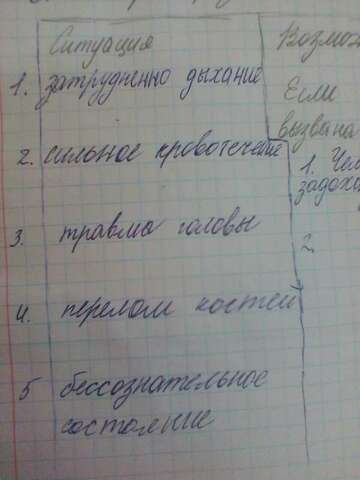 Ситуация
1. затрудненно дыхание
2. сильное кровотечение
3. травма головы
4. перелом костей
5 бессознательное
состояние
Если
вызвана
1.
2